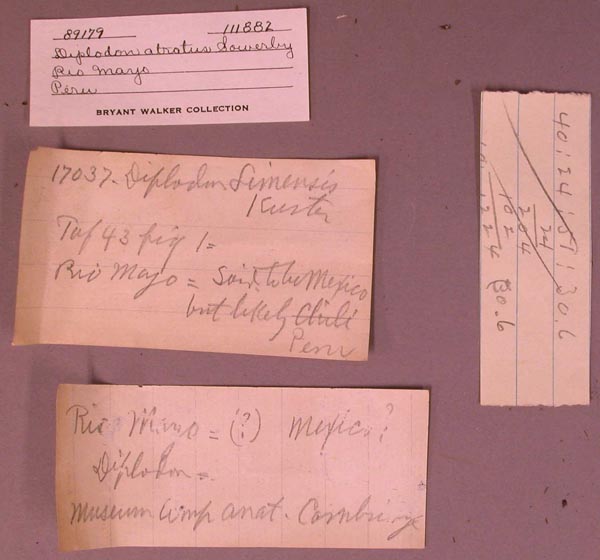 89179 111882
Diplodon atratus Sowerby
Rio Mayo
Peru
BRYANT WALKER COLLECTION
17037. Diplodon Limensis
Kuster
Taf 43 fig 1=
Rio Mayo = Said to be Mexico
but likely Chili
Peru
Rio Mayo = (?) Mexico?
Diplodon =
Museum Comp anat. Cambridge
40:24::51:30.6
24
204
102
1224
30.6